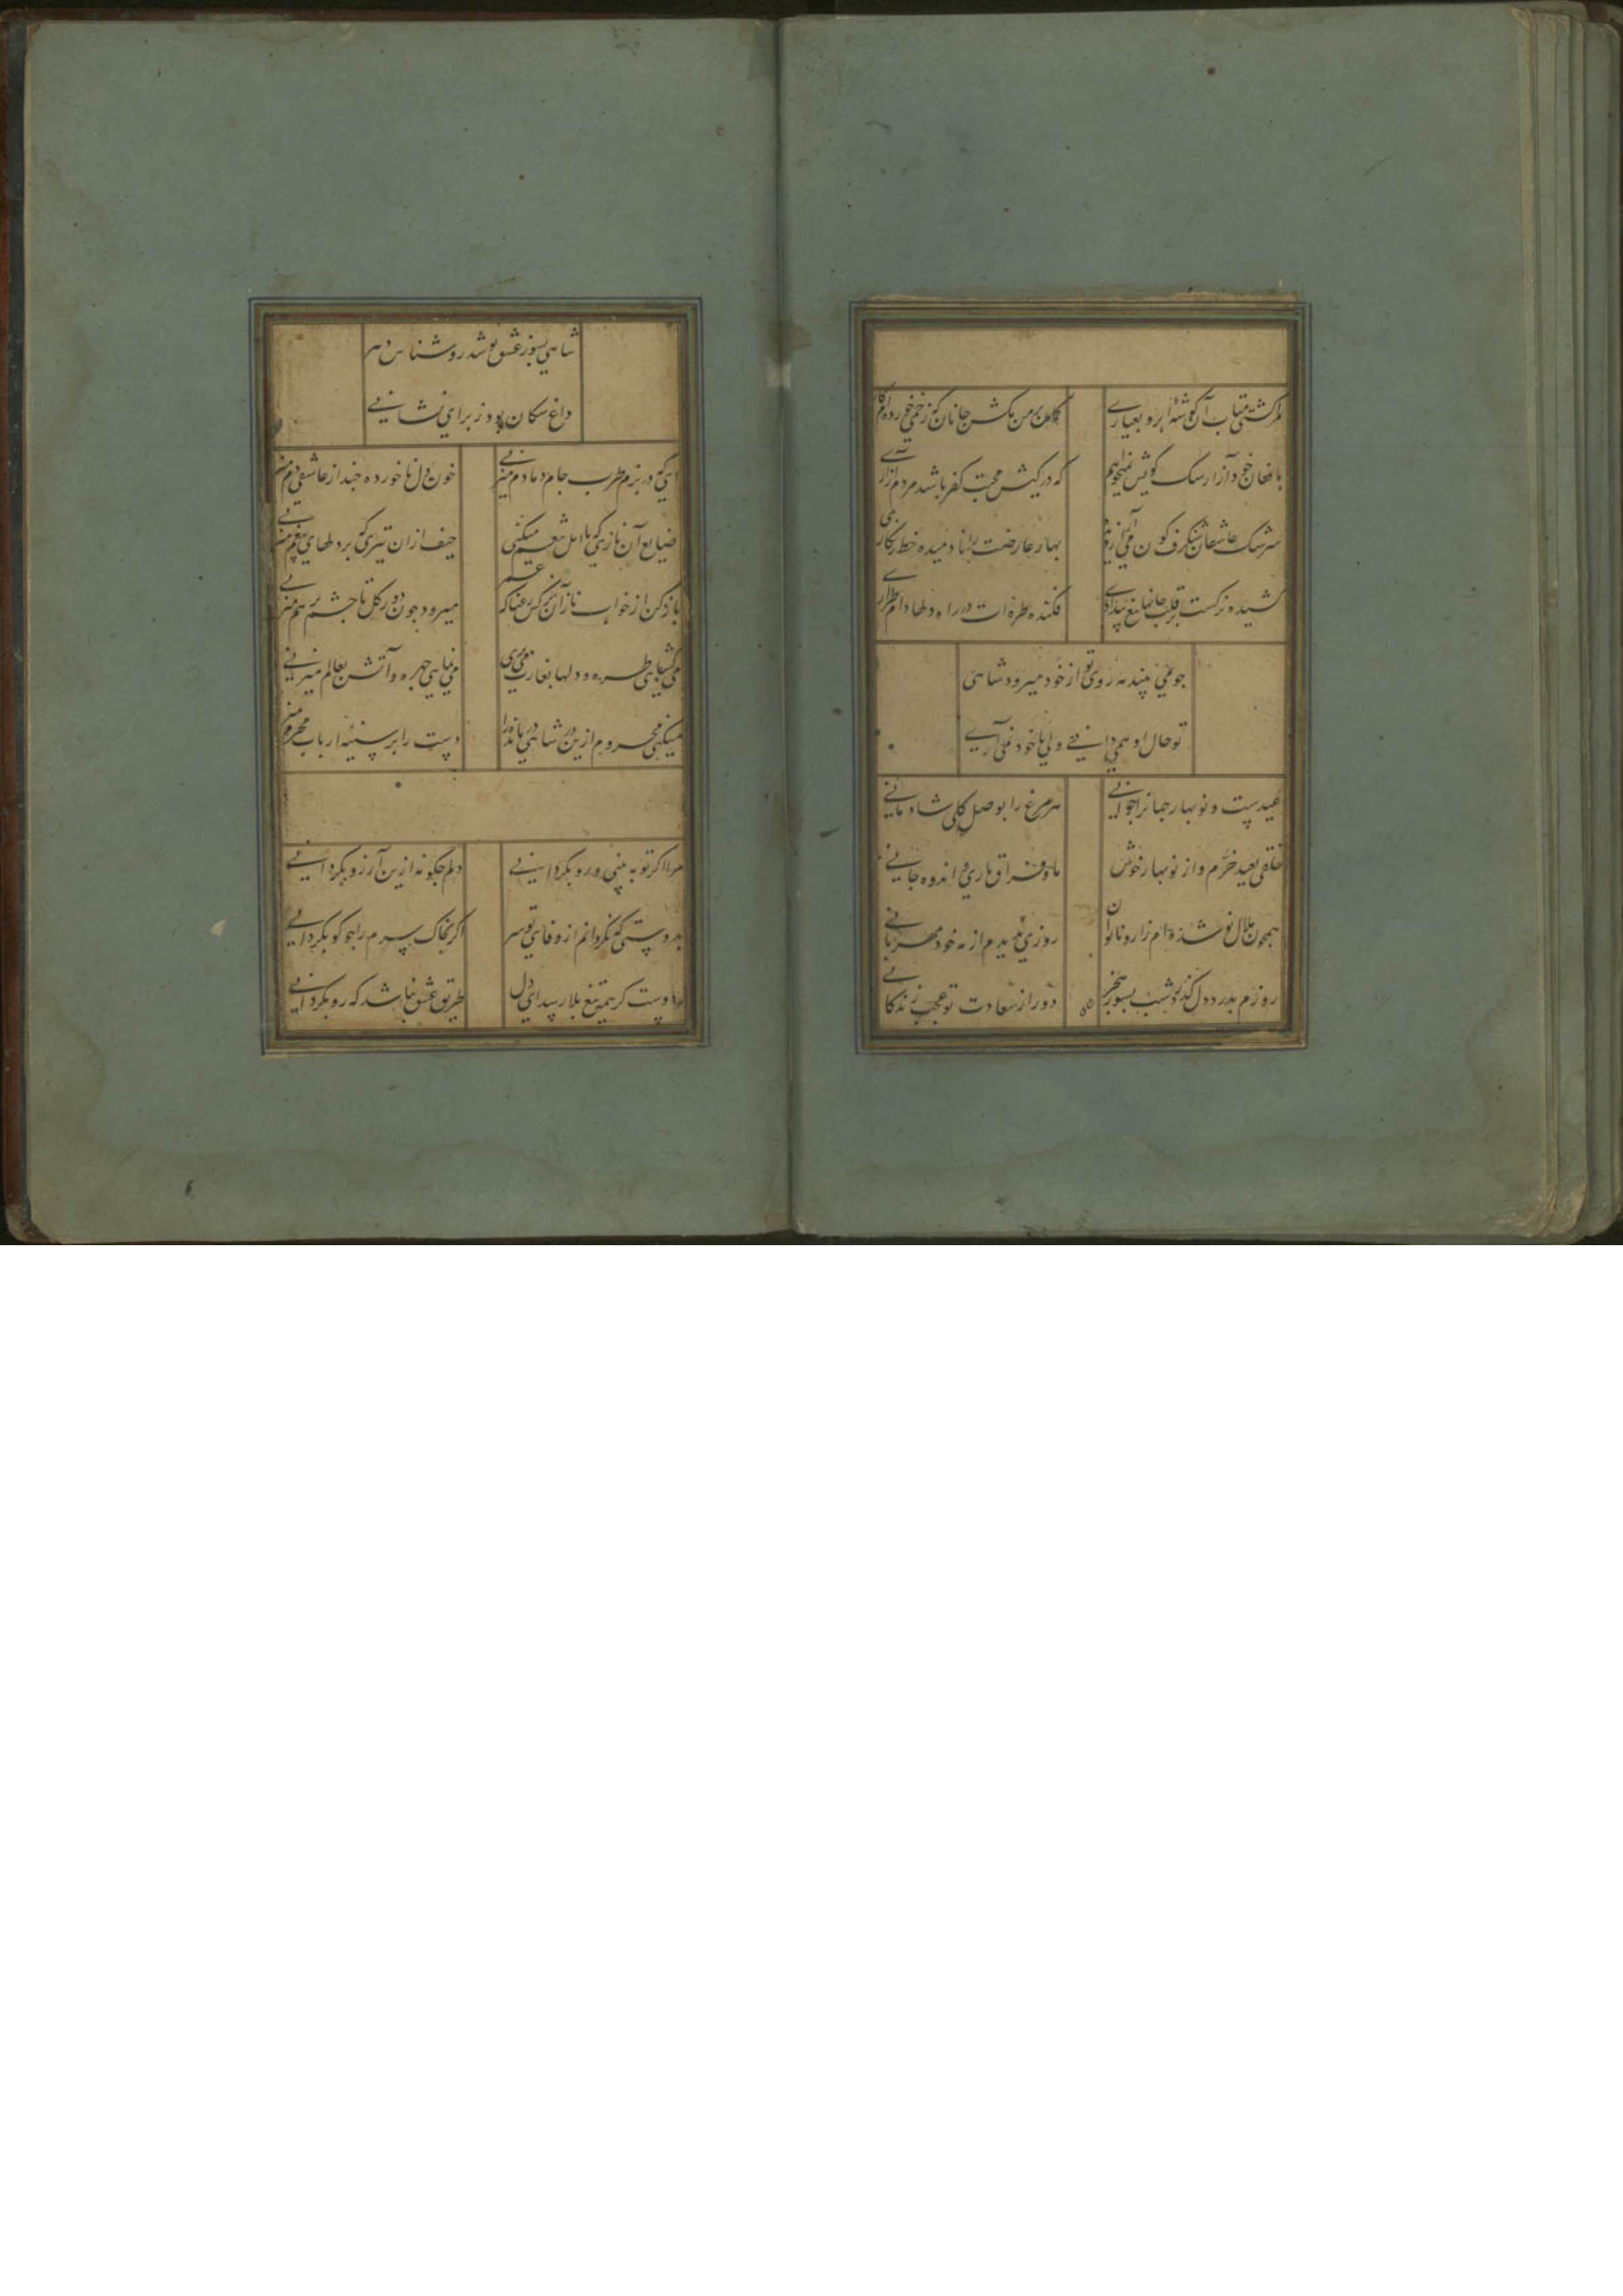 مرا کشتی متاب آن گوشهٔ ابرو بعیاری
کمان بر من مکش جانان که زخمی خورده‌ام کاری
بافغان خود آزار سگ کویش نمیخواهم
که در کیش محبت کفر باشد مردم آزاری
سرشک عاشقان شنکرف کون می آرد
بهار عارضت را نادمیده خط زنکاری
کشیده نرکست بر قلب جانها تیغ بیدادی
فکنده طره‌ات در راه دلها دام طراری
جو می بیند مه روی تو از خود میرود شاهی
تو حال او همی دانی ولی با خود نمی آری
عیدست و نوبهار جهانرا جوانی
هر مرغ را بوصل کلی شادمانی
خلقی بعید خرم و از نوبهار خوش
ما و فراق یاری و اندوه جانی
همچون هلال نو شده‌ام زار و ناتوان
روزی ندیدم از مه خود مهربانی
روزم بدرد دل کذرد شب بسوز هجر
دور از سعادت تو عجب زندکانی
شاهی بسوز عشق تو شد روشناس دهر
داغ سکان بود ز برای نشانی
ای که در بزم طرب جام دمادم میزنی
خون دل ناخورده چند از عاشقی دم میزنی
ضایع آن نازی که با اهل تنعم میکنی
حیف از ان تیری که بر دلهای بیغم میزنی
باز کن از خواب ناز آن نرکس رعنا که عمر
میرود جون دور کل تا جشم بر هم میزنی
می کشایی طره و دلها بغارت می بری
می نمایی جهره و آتش بعالم میزنی
میکنی محروم ازین در شاهی درمانده را
دست رد بر سینهٔ ارباب محرم میزنی
مرا اکر تو به بینی و رو بکردانی
دلم جکونه ازین آرزو بکردانی
بدوستی که نکردانم از وفای تو سر
اکر بخاک سرم را جو کو بکردانی
ز دوست کر همه تیغ بلا رسد ای دل
طریق عشق نباشد که رو بکردانی